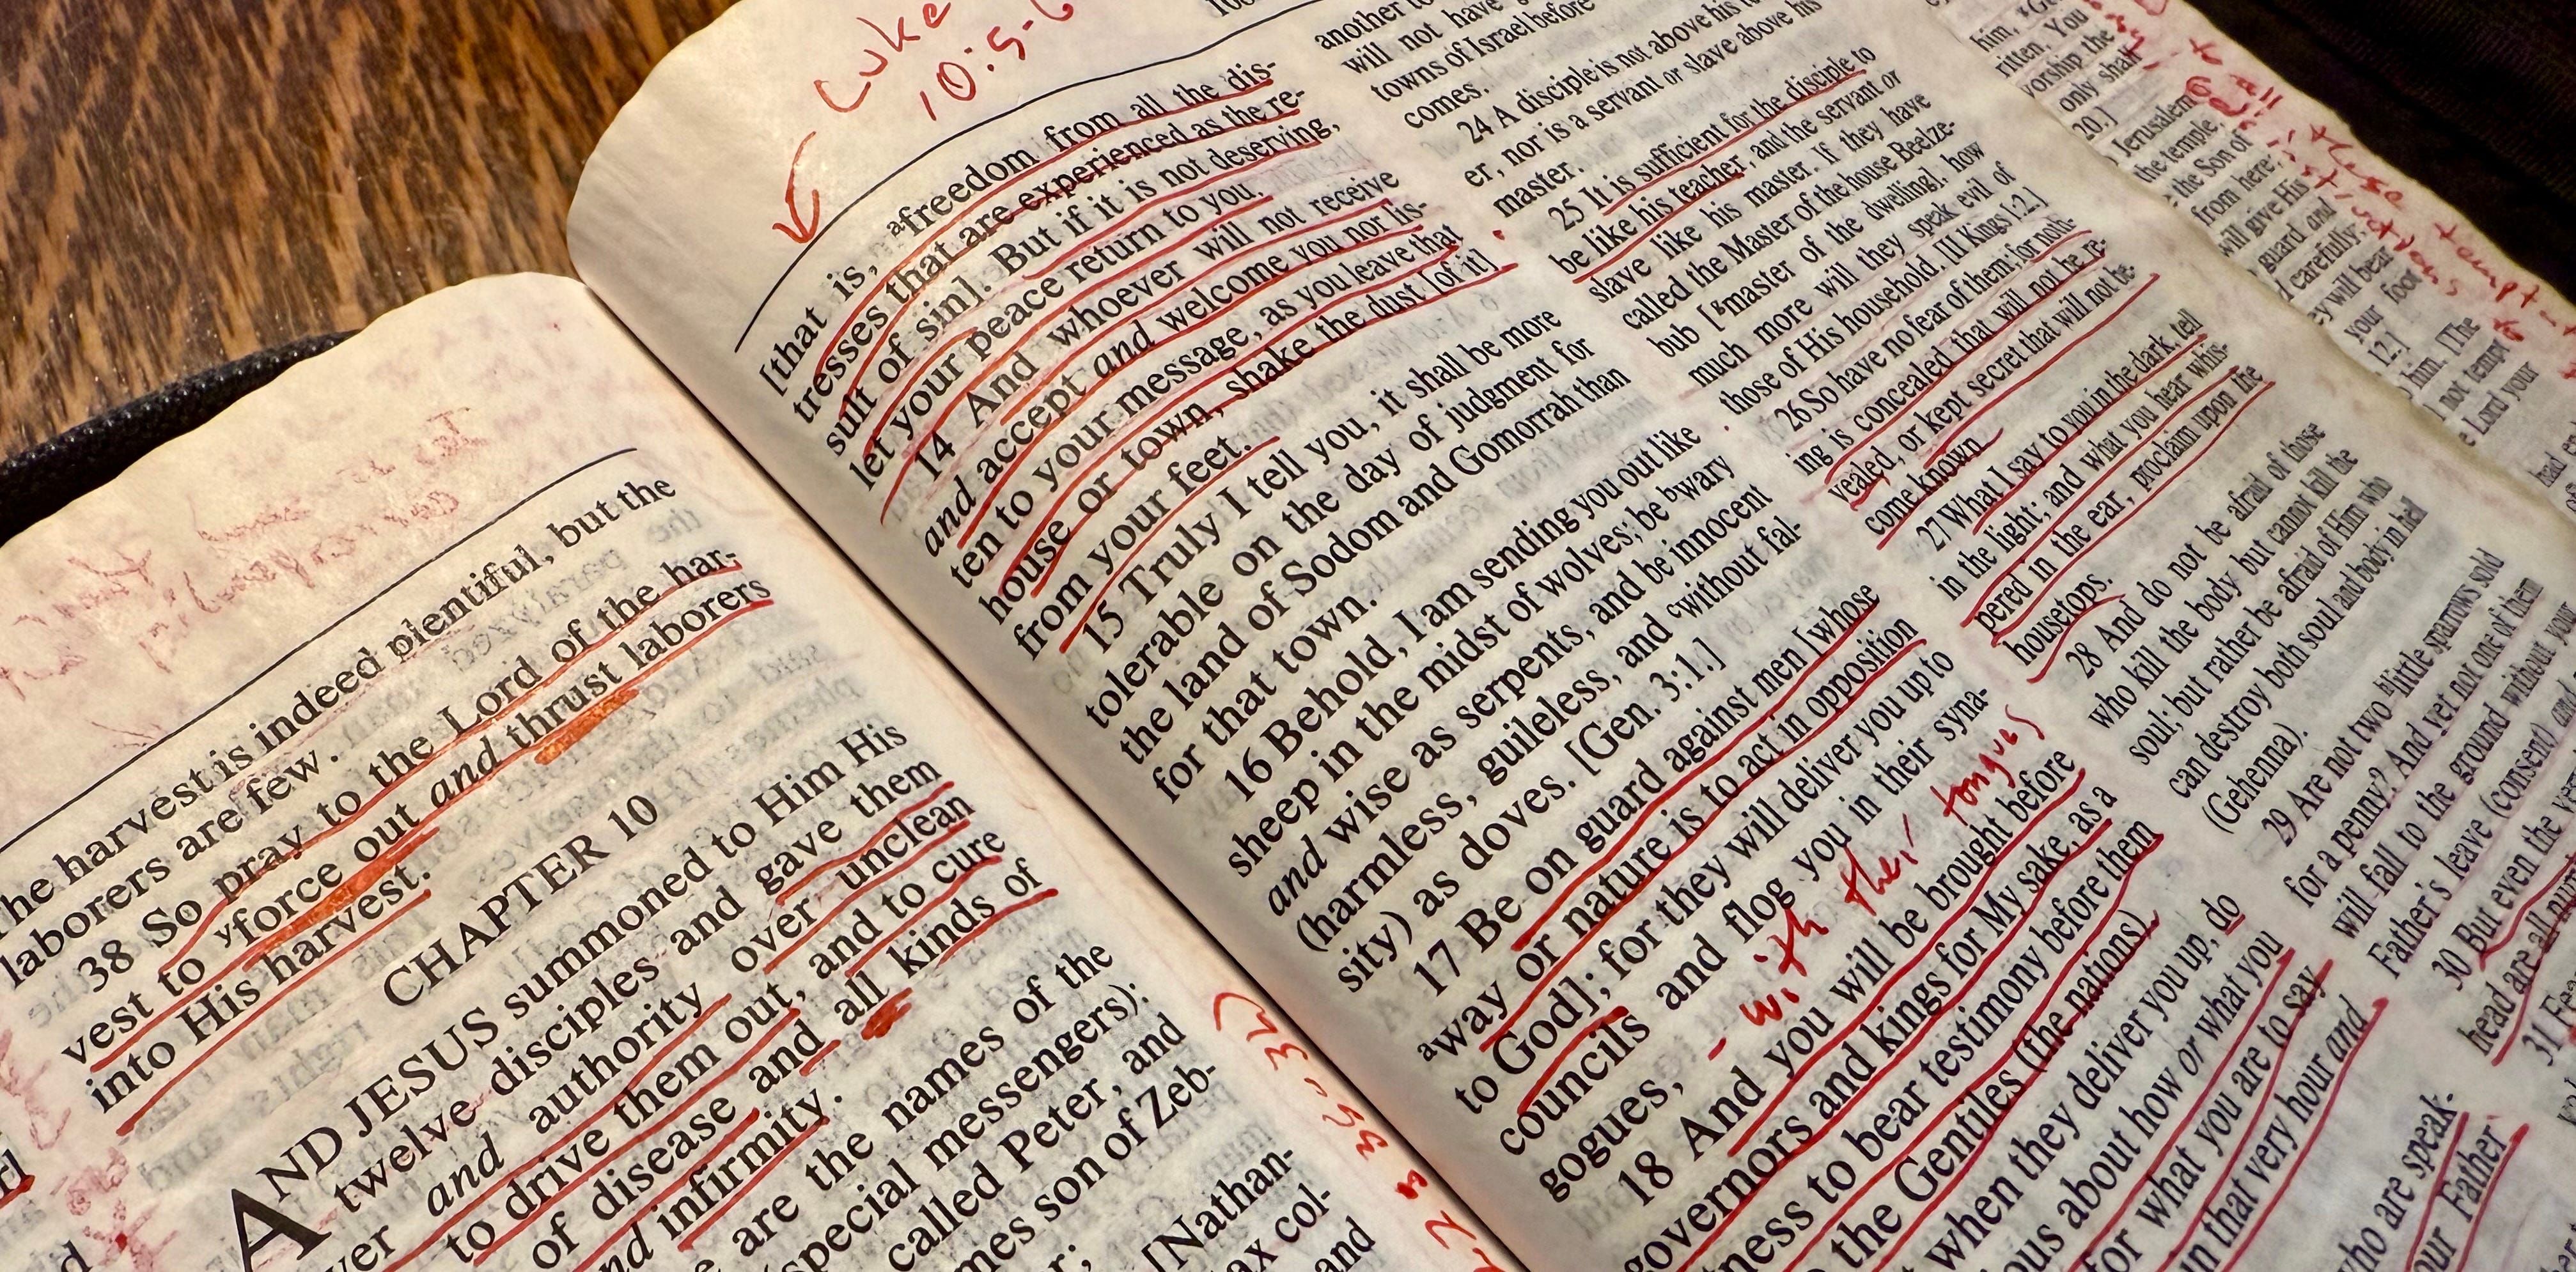 The harvest is indeed plentiful, but the
laborers are few.
38 So pray to the Lord of the har-
vest to yforce out and thrust laborers
into His harvest.
CHAPTER 10
AND JESUS summoned to Him His
twelve disciples and gave them
and authority over unclean
to drive them out, and to cure
of disease and all kinds of
and infirmity.
are the names of the
special messengers):
called Peter, and
son of Zeb-
[Nathan-
col-
and
Luke
10:5-6
[that is, afreedom from all the dis-
tresses that are experienced as the re-
sult of sin]. But if it is not deserving,
let your peace return to you.
14 And whoever will not receive
and accept and welcome you nor lis-
ten to your message, as you leave that
house or town, shake the dust [of it]
from your feet.
15 Truly I tell you, it shall be more
tolerable on the day of judgment for
the land of Sodom and Gomorrah than
for that town.
16 Behold, I am sending you out like
sheep in the midst of wolves; be bwary
and wise as serpents, and be innocent
(harmless, guileless, and cwithout fal-
sity) as doves. [Gen. 3:1.]
17 Be on guard against men [whose
away or nature is to act in opposition
to God]; for they will deliver you up to
councils and flog you in their syna-
gogues, - with their tongues
18 And you will be brought before
governors and kings for My sake, as a
to bear testimony before them
the Gentiles (the nations).
when they deliver you up, do
about how or what you
for what you are to say
in that very hour and
who are speak-
Father
another
will not have
towns of Israel before
comes.
24 A disciple is not above his
er, nor is a servant or slave above his
master.
25 It is sufficient for the disciple to
be like his teacher, and the servant or
slave like his master. If they have
called the Master of the house Beelze-
bub [master of the dwelling], how
much more will they speak evil of
those of His household. [II Kings 1:2.]
26 So have no fear of them; for noth-
ing is concealed that will not be re-
vealed, or kept secret that will not be-
come known.
27 What I say to you in the dark, tell
in the light; and what you hear whis-
pered in the ear, proclaim upon the
housetops.
28 And do not be afraid of those
who kill the body but cannot kill the
soul; but rather be afraid of Him who
can destroy both soul and body in hell
(Gehenna).
29 Are not two little sparrows sold
for a penny? And yet not one of them
will fall to the ground without your
Father's leave (consent) and
30 But even the very
head are all
31
him,
ritten, You
worship the
only shall
Jerusalem
the temple,
the Son of
from here;
will give His
guard and
carefully;
will bear
your foot
him, [The
not tempt
Lord your